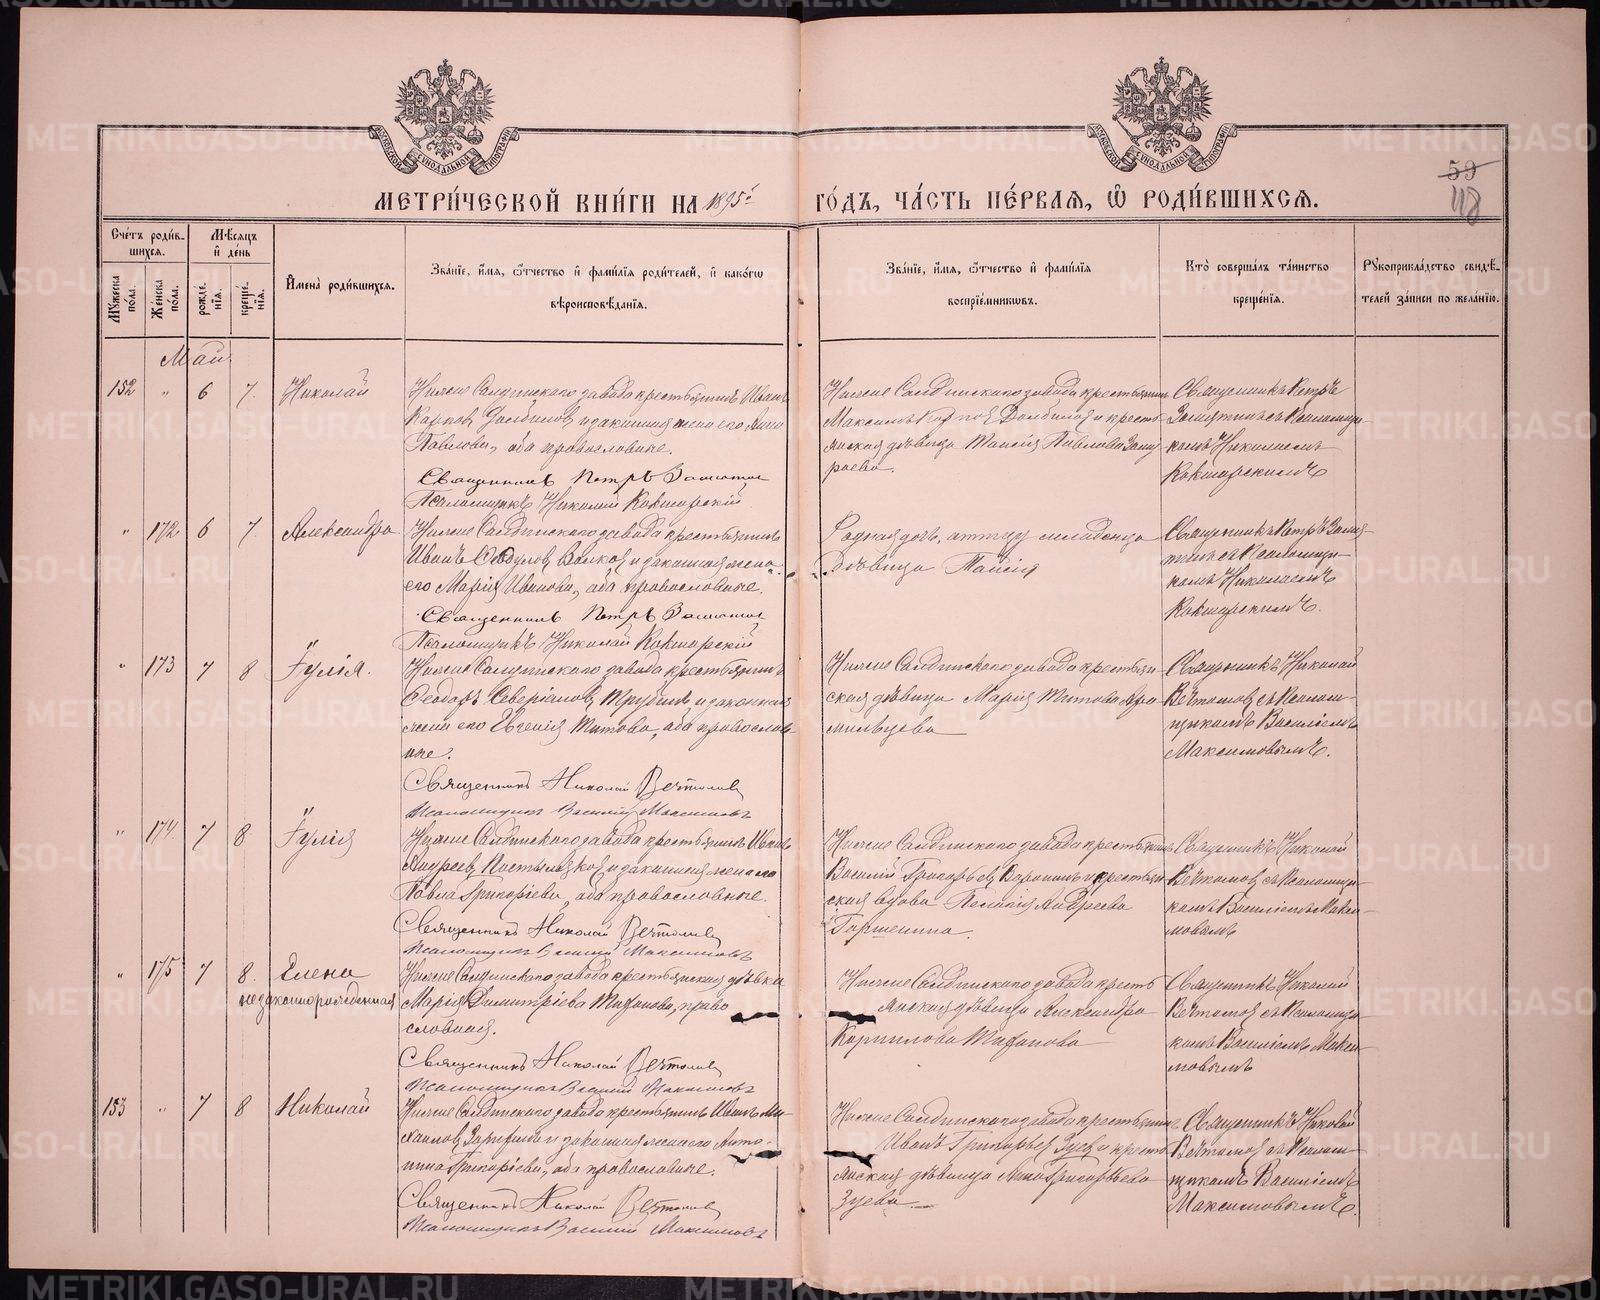 МЕТРИ́ЧЕСКОЙ КНИ́ГИ НА 1895й ГО́ДЪ, ЧА́СТЬ ПЕ́РВАЯ, Ѿ РОДИ́ВШИХСЯ.
59
118
Сче́тъ роди́в-
шихся.
Мѣ́сяцъ
и҆ де́нь
Мꙋ́жеска
по́ла.
Же́нска
по́ла.
рожде́-
нїѧ.
креще́-
нїѧ.
И҆мена̀ роди́вшихся.
Зва́нїе, и҆́мя, ѻ҆́тчество и҆ фами́лїя роди́телей, и҆ како́гѡ
вѣроисповѣ́данїя.
Зва́нїе, и҆́мя, ѻ҆́тчество и҆ фами́лїя
воспрїе́мникѡвъ.
Кто̀ соверша́лъ та́инство
креще́нїя.
Рꙋкоприкла́дство свидѣ́-
телей за́писи по жела́нїю.
Май.
152 " 6 7. Николай
Нижне Салдинскаго завода крестьянинъ Иванъ
Карпов и законная жена его Анна
Павлова, оба православные.
Священникъ Петръ
Псаломщикъ Николай Кокшарскій
Нижне Салдинскаго завода крестьянинъ
Максимъ и кресть-
янская дѣвица Таисія Павлова
раева.
Священникъ Петръ
съ Псаломщи-
комъ Николаемъ
Кокшарскимъ
" 172 6 7. Александра
Нижне Салдинскаго завода крестьянинъ
Иванъ Волков и законная жена
его Марія Иванова, оба православные.
Священникъ Петръ
Псаломщикъ Николай Кокшарскій
Родная дочь, отцу младенца
Дѣвица Таисія
Священникъ Петръ
съ Псаломщи-
комъ Николаемъ
Кокшарскимъ.
" 173 7 8 Іулія.
Нижне Салдинскаго завода крестьянинъ
Феодоръ Северіановъ Трубин и законная
жена его Евгенія Титова, оба православ-
ные.
Священникъ Николай Ветошов
Псаломщикъ Василій Максимовъ
Нижне Салдинскаго завода крестьян-
ская дѣвица Марія Титова
Священникъ Николай
съ Псалом-
щикомъ Василіемъ
Максимовымъ.
" 174. 7 8 Іулія
Нижне Салдинскаго завода крестьянинъ
Андреев и законная жена его
Павла Григоріева, оба православные.
Священникъ Николай
Псаломщикъ Василій Максимовъ
Нижне Салдинскаго завода крестьянинъ
Василій Григорьев Воронин и крестьян-
ская вдова Пелагія Андреева
Горшенина.
Священникъ Николай
съ Псаломщи-
комъ Василіемъ Макси-
мовымъ
" 175 7 8. Елена
незаконнорожденная
Нижне Салдинскаго завода крестьянская дѣвка
Марія Димитріева Тифанова, право
славная.
Священникъ Николай
Псаломщикъ Василій Максимовъ
Нижне Салдинскаго завода кресть
янская дѣвица Александра
Кириллова Тифанова
Священникъ Николай
съ Псаломщи-
комъ Василіемъ Макси-
мовымъ
153 " 7 8 Николай
Нижне Салдинскаго завода крестьянинъ Иванъ Ми-
хаиловъ и законная жена его Анто-
нина Григоріева, оба православные.
Священникъ Николай
Псаломщикъ Василій Максимовъ
Нижне Салдинскаго завода крестьянинъ
Иванъ Григорьев Зуев и кресть-
янская дѣвица Анна Григорьева
Зуева
Священникъ Николай
съ Псалом-
щикомъ Василіемъ
Максимовымъ.
METRIKI.GASO-URAL.RU